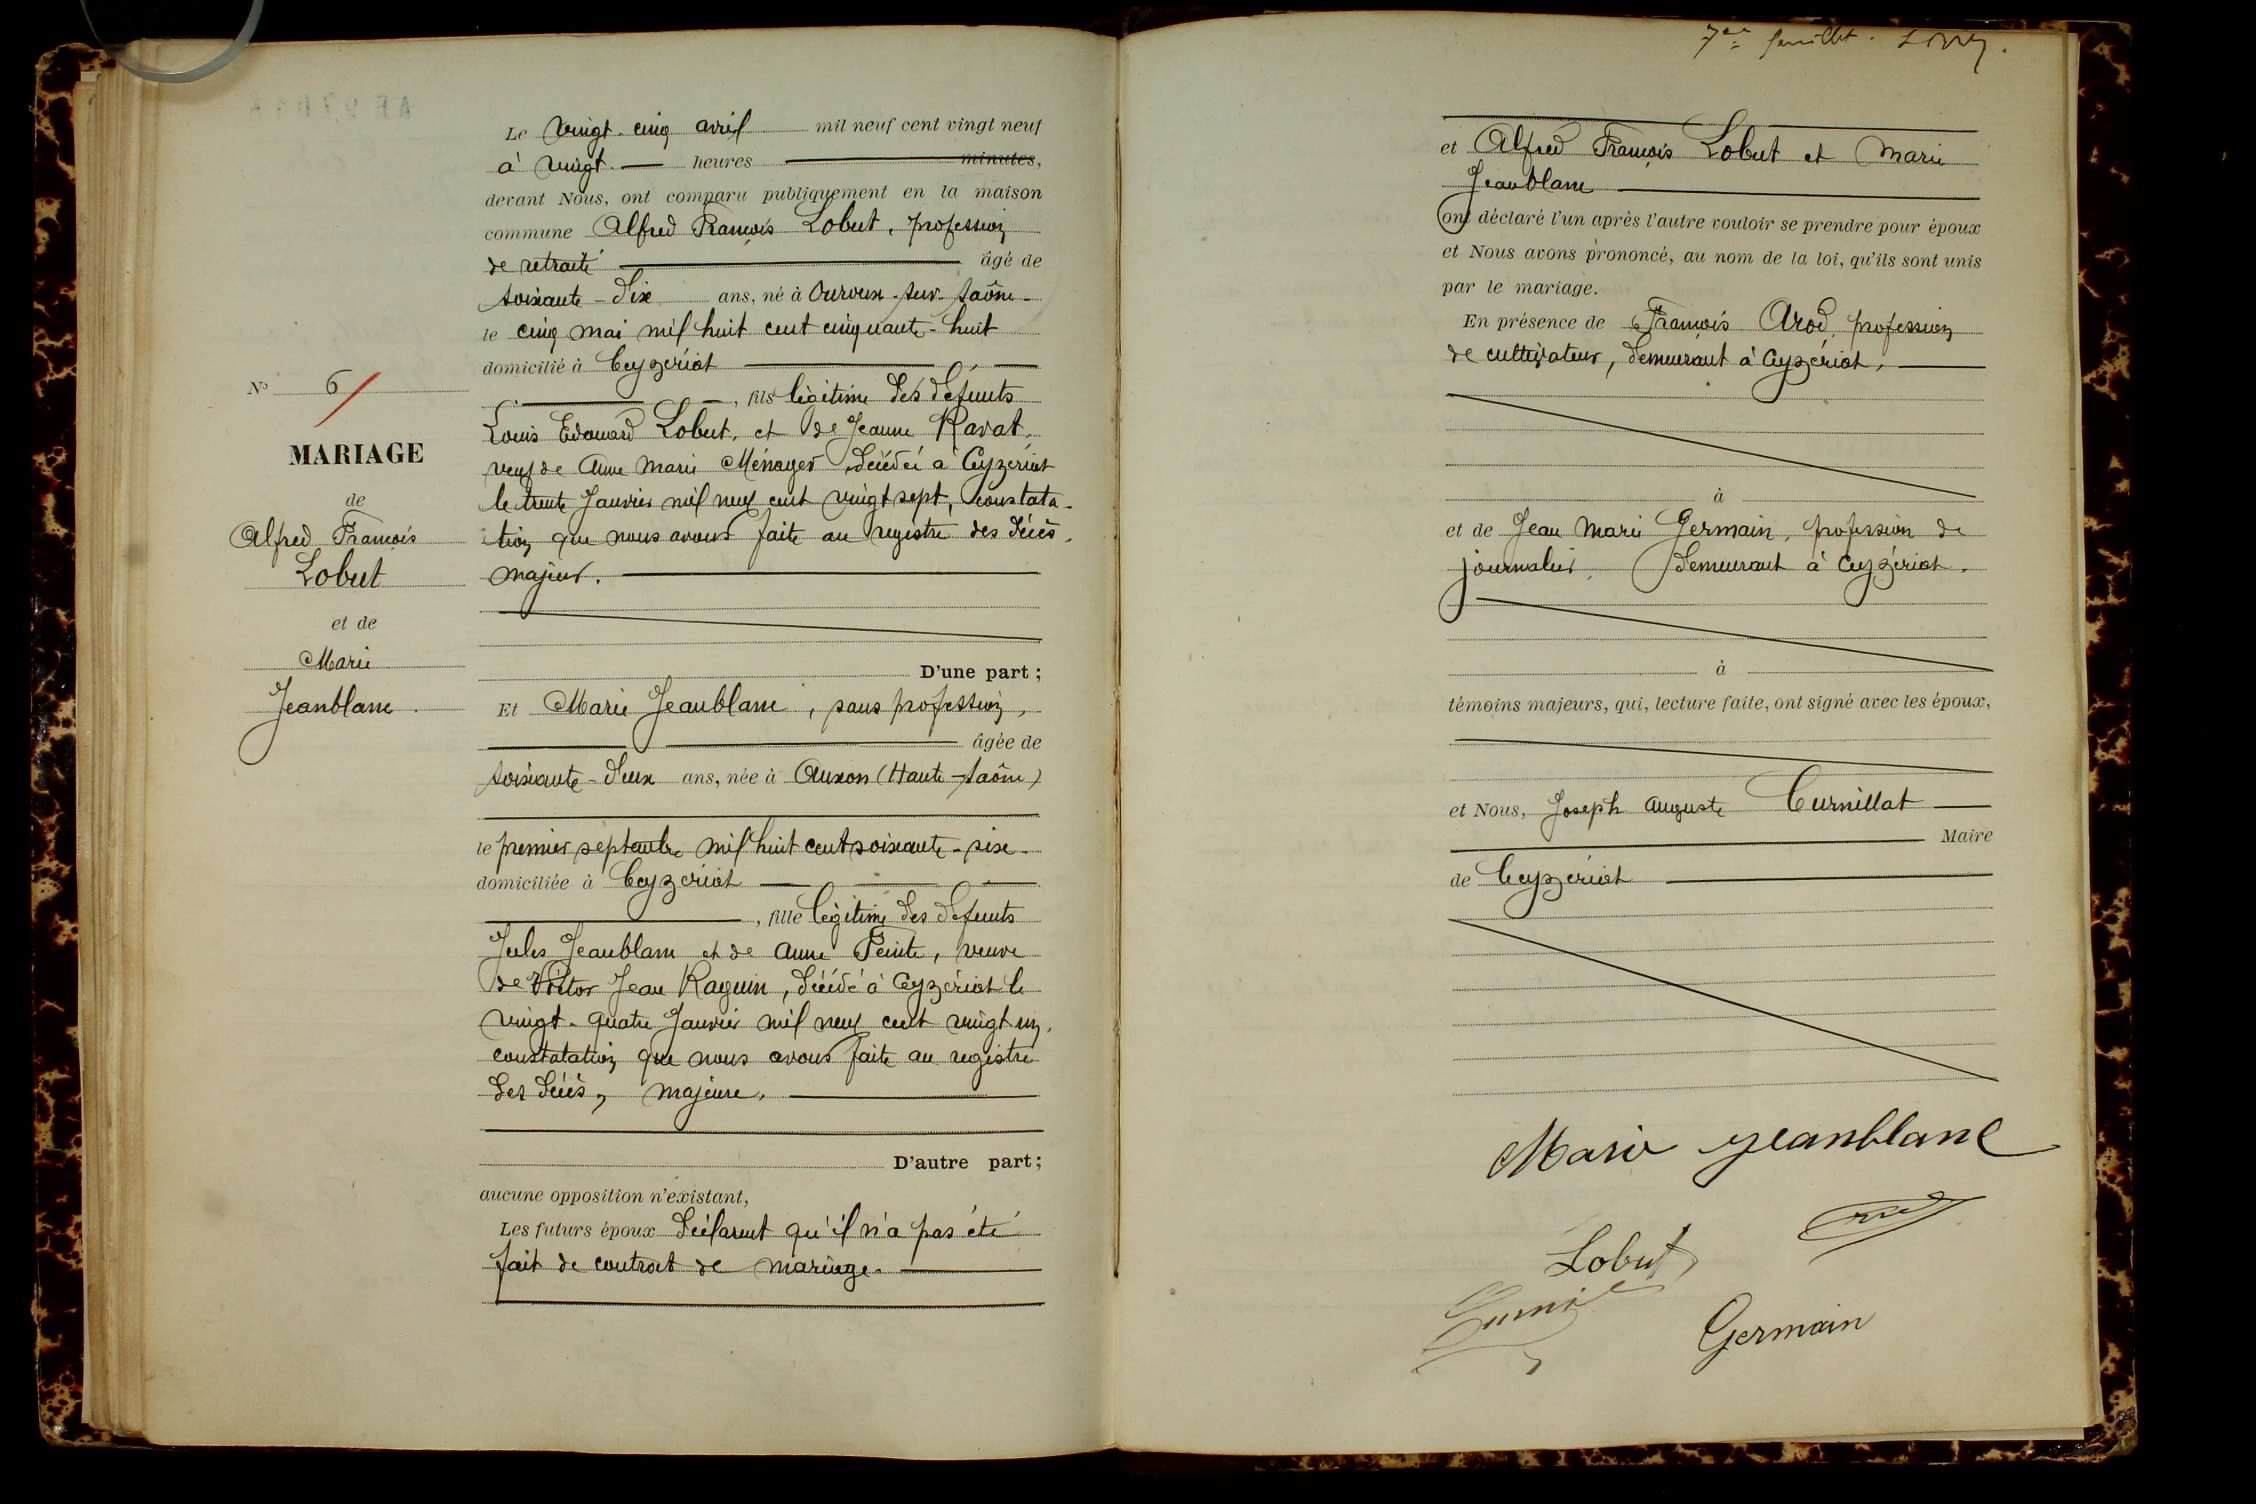 Le vingt-cinq avril mil neuf cent vingt neuf
à vingt heures minutes,
devant Nous, ont comparu publiquement en la maison
commune Alfred François Lobut, profession
de retraité âgé de
soixante-dix ans, né à Ouroux-sur-Saône-
le cinq mai mil huit cent cinquante-huit
domicilié à Ceyzériat
, fils légitime des défunts
Louis Edouard Lobut, et de Jeanne Ravat,
veuf de Anne Marie Ménager, décédée à Ceyzériat
le trente Janvier mil neuf cent vingt sept, constata-
tion que nous avons faite au registre des décès,
majeur.
D'une part;
Nº 6
MARIAGE
de
Alfred François
Lobut
et de
Marie
Jeanblanc
Et Marie Jeanblanc, sans profession,
âgée de
soixante-deux ans, née à Auxon (Haute-Saône)
le premier septembre mil huit cent soixante-six-
domiciliée à Ceyzériat
, fille légitime des défunts
Jules Jeanblanc et de Anne Peinte, veuve
de Victor Jean Raguin, décédé à Ceyzériat le
vingt-quatre Janvier mil neuf cent vingt un,
constatation que nous avons faite au registre
des décès, majeure.
D'autre part;
aucune opposition n'existant,
Les futurs époux déclarent qu'il n'a pas été
fait de contrat de mariage.
feuillet.
et Alfred François Lobut et Marie
Jeanblanc
ont déclaré l'un après l'autre vouloir se prendre pour époux
et Nous avons prononcé, au nom de la loi, qu'ils sont unis
par le mariage.
En présence de François Arod, profession
de cultivateur, demeurant à Ceyzériat,
à
et de Jean Marie Germain, profession de
journalier, demeurant à Ceyzériat.
à
témoins majeurs, qui, lecture faite, ont signé avec les époux,
et Nous, Joseph Auguste Curnillat
Maire
de Ceyzériat
Marie Jeanblanc
Lobut
Germain